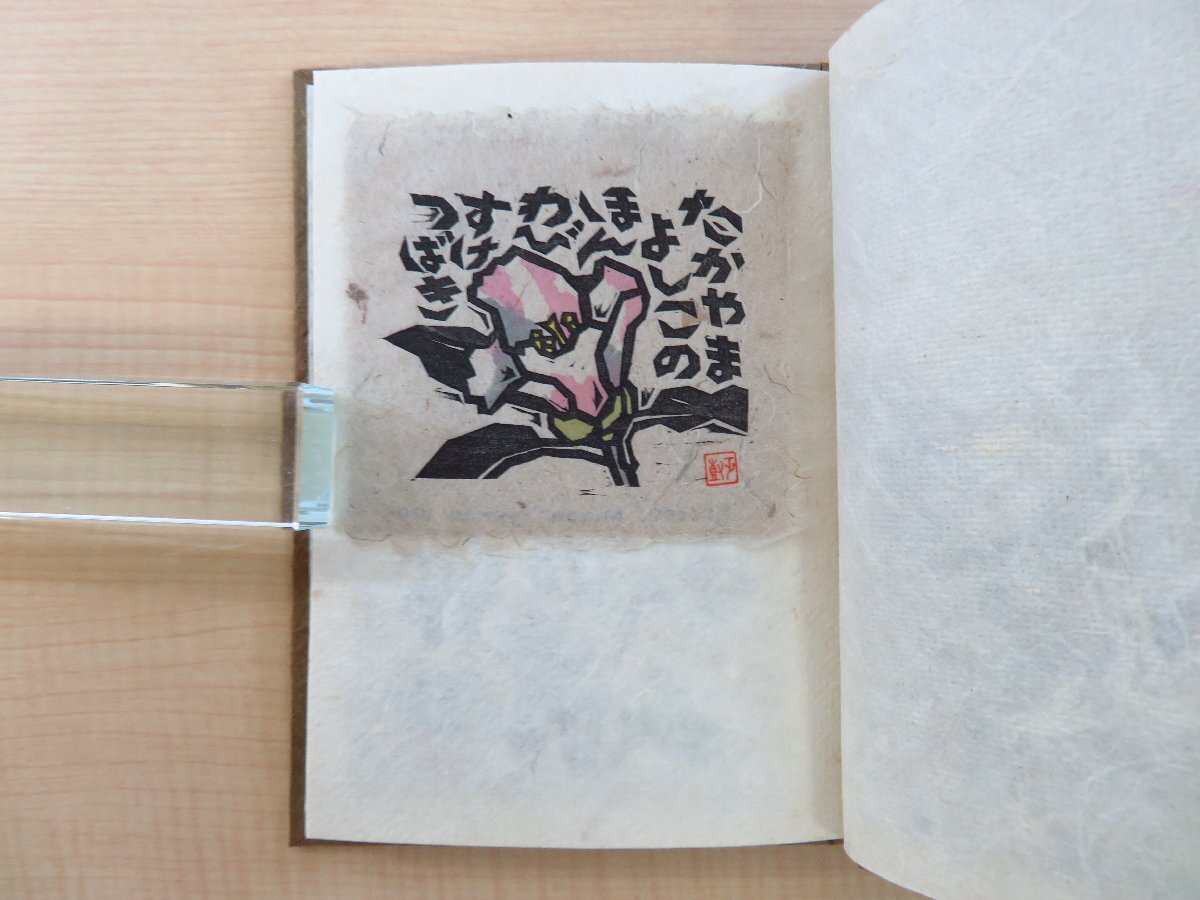 たかやま
よしこの
ほん
わび
すけ
つばき